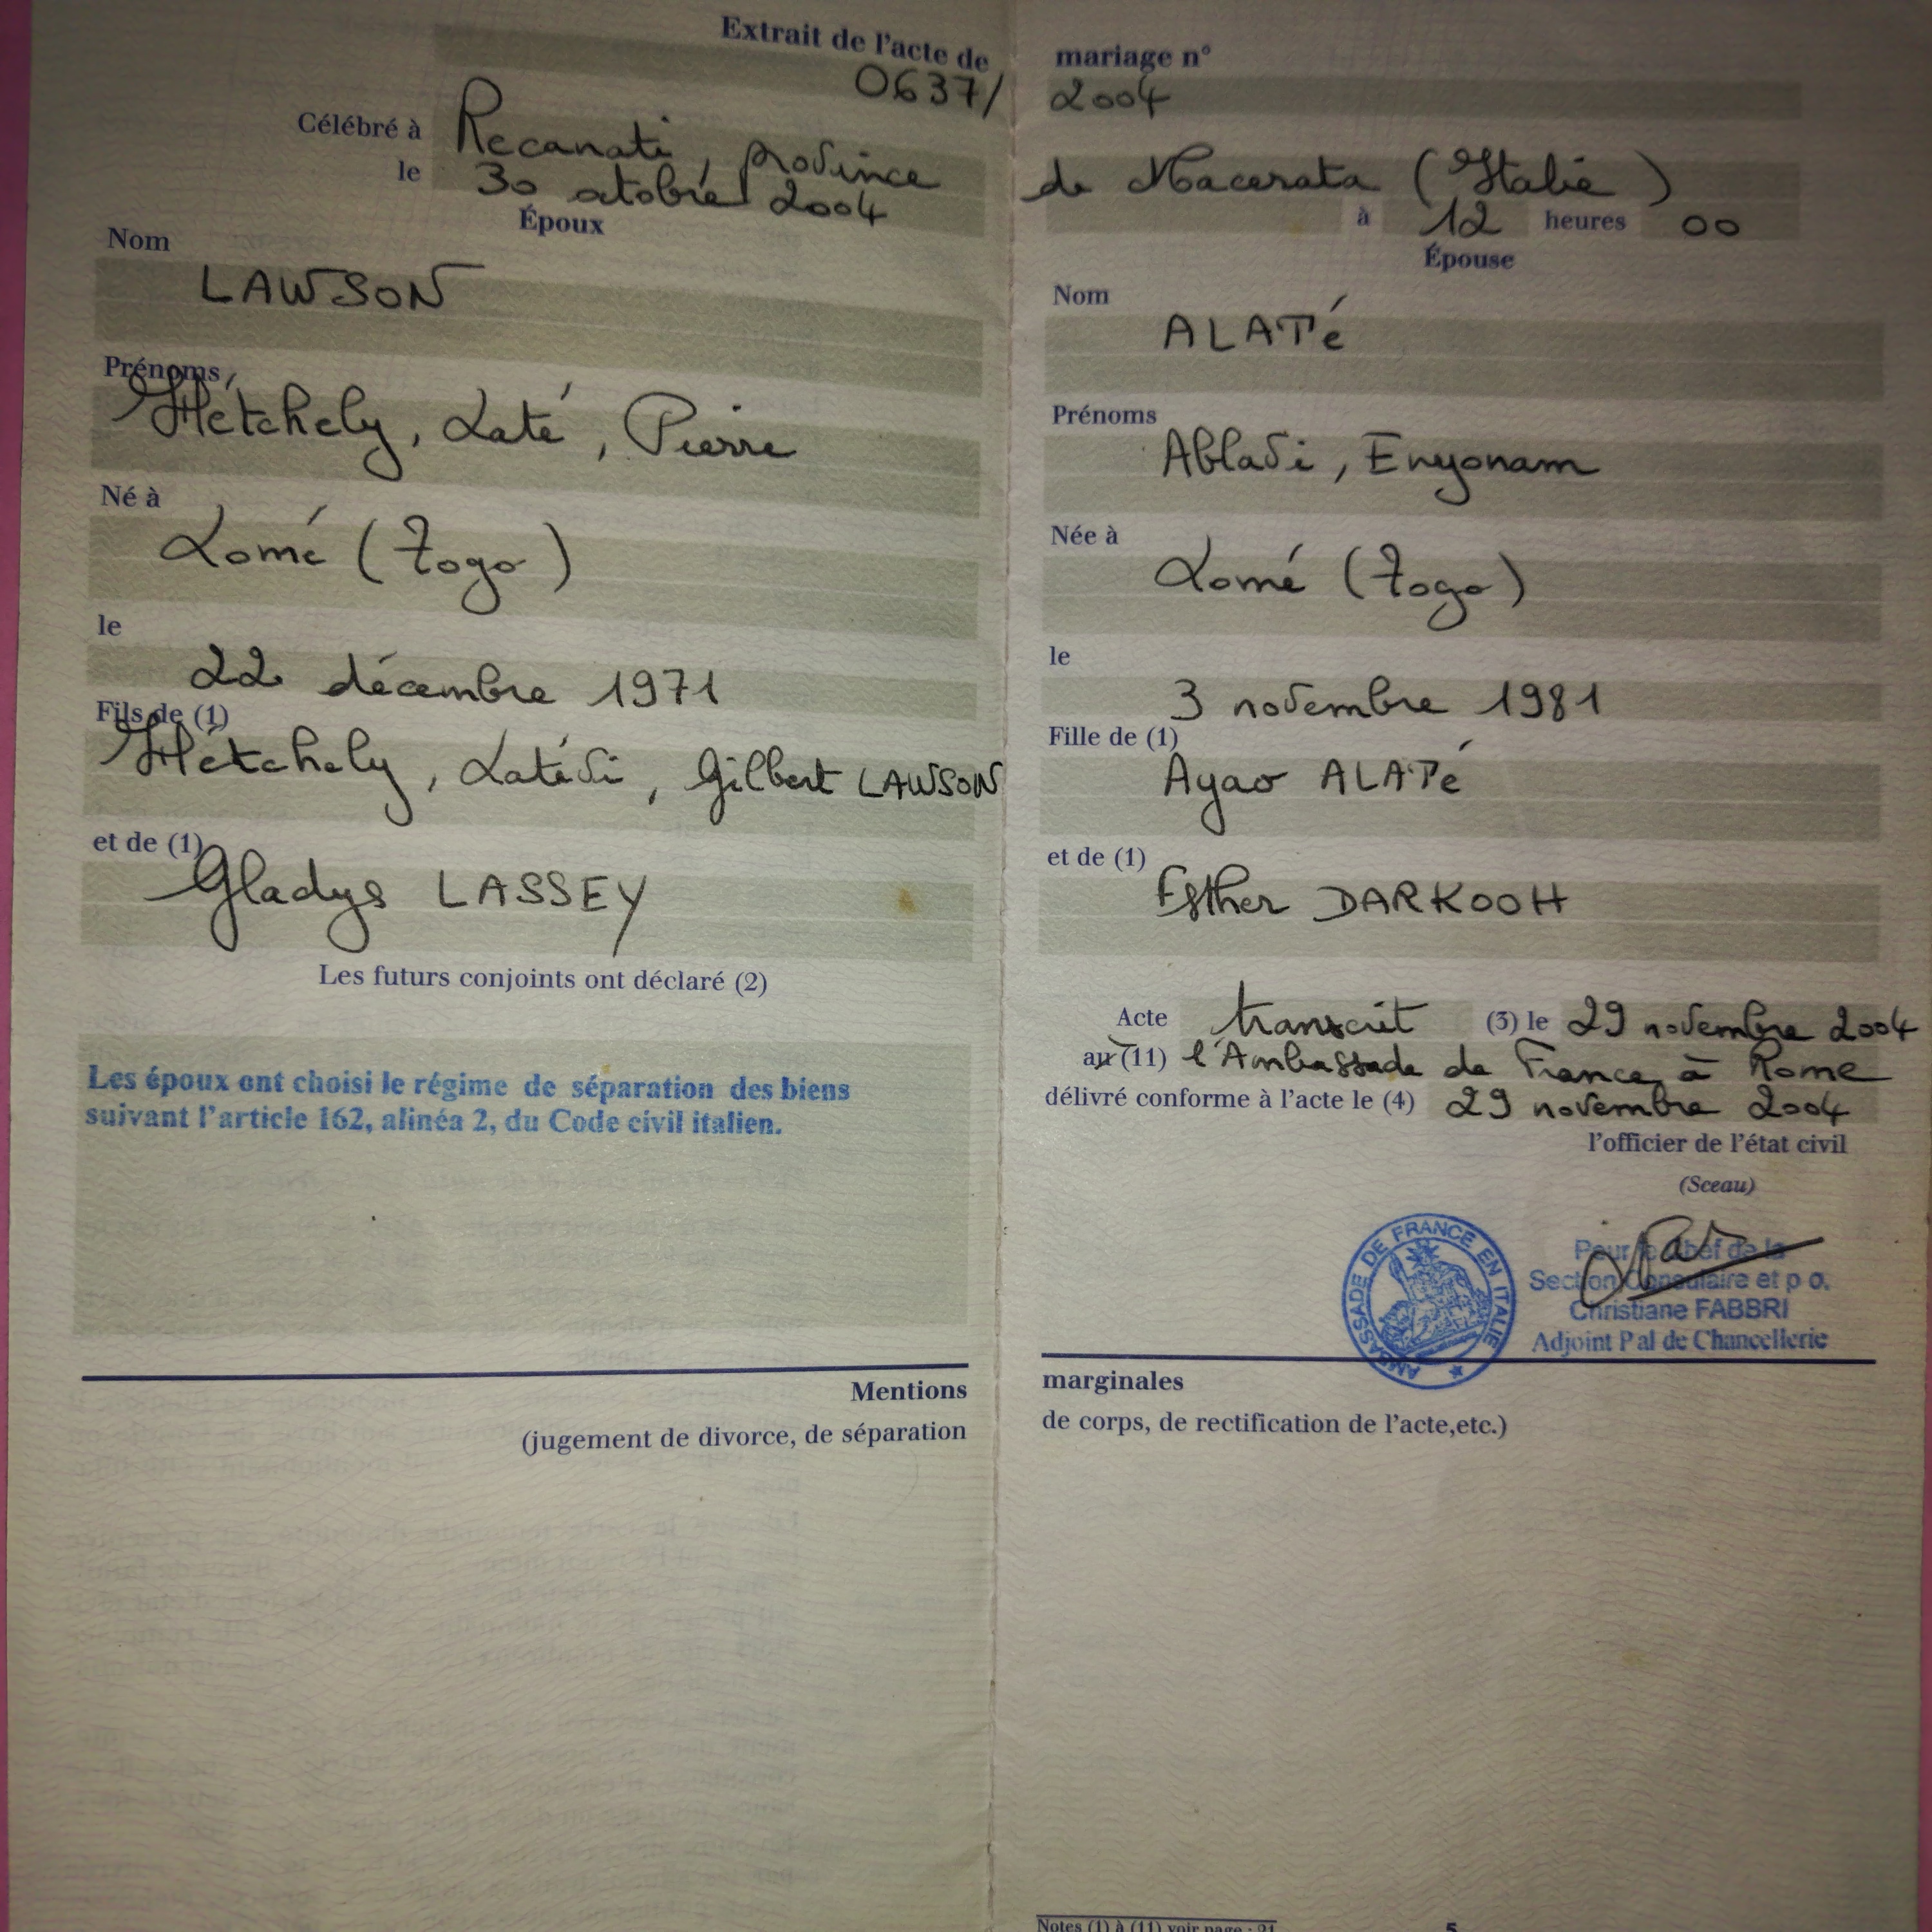 Extrait de l'acte de mariage n°
0637/ 2004
Célébré à Recanati, province de Macerata (Italie)
le 30 octobre 2004 à 12 heures 00
Époux
Nom
LAWSON
Prénoms
Hétchely, Laté, Pierre
Né à
Lomé (Togo)
le
22 décembre 1971
Fils de (1)
Hétchely, Latévi, Gilbert LAWSON
et de (1)
Gladys LASSEY
Les futurs conjoints ont déclaré (2)
Les époux ont choisi le régime de séparation des biens
suivant l'article 162, alinéa 2, du Code civil italien.
Épouse
Nom
ALATÉ
Prénoms
Ablavi, Enyonam
Née à
Lomé (Togo)
le
3 novembre 1981
Fille de (1)
Ayao ALATÉ
et de (1)
Esther DARKOOH
Acte transcrit (3) le 29 novembre 2004
au (11) l'Ambassade de France à Rome
délivré conforme à l'acte le (4) 29 novembre 2004
l'officier de l'état civil
(Sceau)
AMBASSADE DE FRANCE EN ITALIE
Pour le Chef de la
Section Consulaire et p o.
Christiane FABBRI
Adjoint Pal de Chancellerie
Mentions marginales
(jugement de divorce, de séparation de corps, de rectification de l'acte,etc.)
Notes (1) à (11) voir page : 21
5